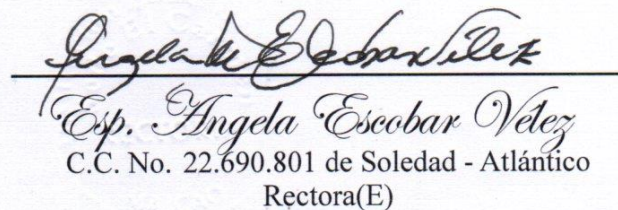 Angela M Escobar Vélez
Esp. Angela Escobar Vélez
C.C. No. 22.690.801 de Soledad - Atlántico
Rectora(E)